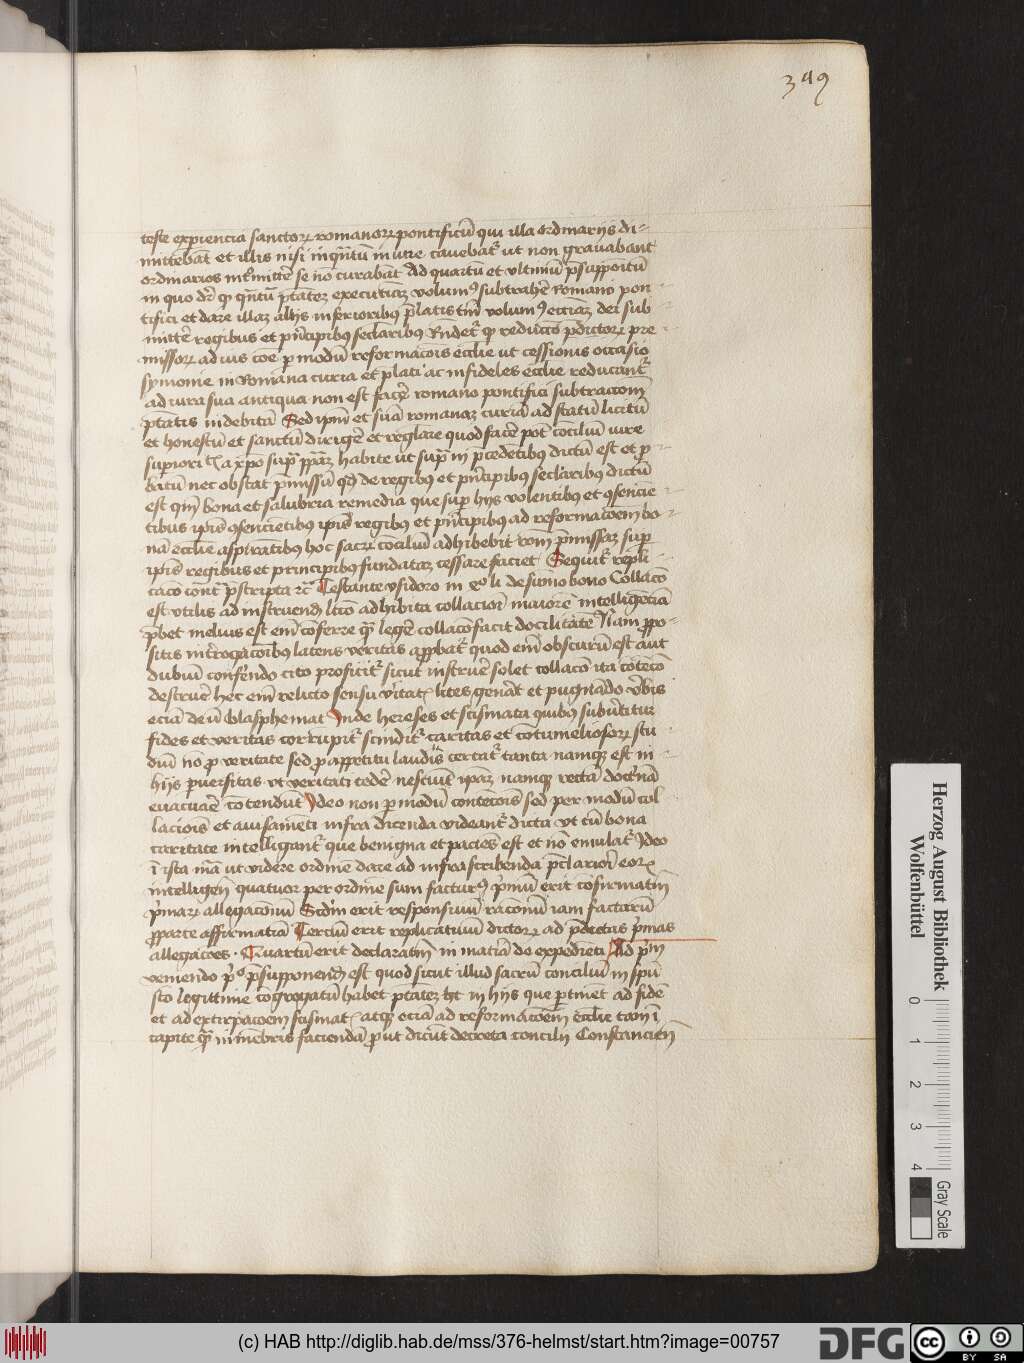 349
teste experiencia sanctorum romanorum pontificu qui illa ordinariis di-
mittebat et illis nisi in qntu in iure cavebat ut non gravabant
ordinarios intmitte se no curabat Ad quartu et ultimu psuppositu
in quo dr q qntu ptatez executiuaz volum subtrahe Romano pon-
tifici et dare illaz aliis inferioribus platis tm volum ecciaz dei sub
mitte regibus et pncipibus seclaribus Rndet q reductio pdictorum pre
missorum ad ius coe p modu reformacois ecclie ut cessionis occasio
symonie in Romana curia et plati ac infideles ecclie reducant
ad iura sua antiqua non est face romano pontifici subtractiom
ptatis indebita Sed ipm et sua romanaz curia ad statu licitu
et honestu et sanctu dirige et reglare quod face pot conciliu iure
superiori a xpo sup ppaz habite ut sup in pcedetibus dictu est et p
batu nec obstat pmissu qd de regibus et pncipibus seclaribus dictu
est qm bona et salubria remedia que sup hiis volentibus et qsencie
tibus ipis qsencietibus ipis regibus et pncipibus ad reformacoem bo
na ecclie aspiratibus hoc sacrum conciliu adhibebit rom pmissaz sup
ipis regibus et principibus fundataz cessare faciet Sequit repli-
caco cont pscripta rc Testante ysidoro in li de sumo bono Collaco
est utilis ad instruend lco adhibita collacior maiore intelligecia
pbet melius est em coferre q lege collaco facit docilitate Nam ppo-
sitis introgacoibus latens veritas appbat quod em obscuru est aut
dubiu conferendo cito proficit sicut instrue solet collaco ita coteco
destrue hec em relicto sensu vitat lites genat et pugnado vbis
ecia deu blasphemat Inde hereses et scismata quibus subvertitur
fides et veritas corrupit scindit caritas et cotumeliosorum stu
diu no p veritate sed p appetitu laudis certat tanta namque est in
hiis pversitas ut veritati cede nesciut ipaz namque recta doctna
evacuae cotendut Ideo non p modu contecois sed per modu col
laciois et avisameti infra dicenda videant dicta ut cu bona
caritate intelligant que benigna et pacies est et no emulat Ideo
i ista ma ut videre ordine dare ad infrascribenda pclarior eorum
intelligen quatuor per ordine sum facturus pmu erit cofirmatm
pmarum allegaconu Scdm erit responsiuu raconu iam factaru
pparte affirmatia Terciu erit replicatiuu dictorum ad pdictas pmas
allegacoes Quartu erit declaratm in matia de expedieti Ad pm
veniendo po psupponend est quod sicut illud sacru conciliu in spu
sto legittime cogregatu habet ptatez ht in hiis que ptinet ad fide
et ad extirpacoem scismat atque ecia ad reformacoem ecclie tam i
capite q in mebris facienda put dicut decreta concilii Constancien
Herzog August Bibliothek
Wolfenbüttel
0 1 2 3 4
Gray Scale
(c) HAB http://diglib.hab.de/mss/376-helmst/start.htm?image=00757
DFG
cc BY SA